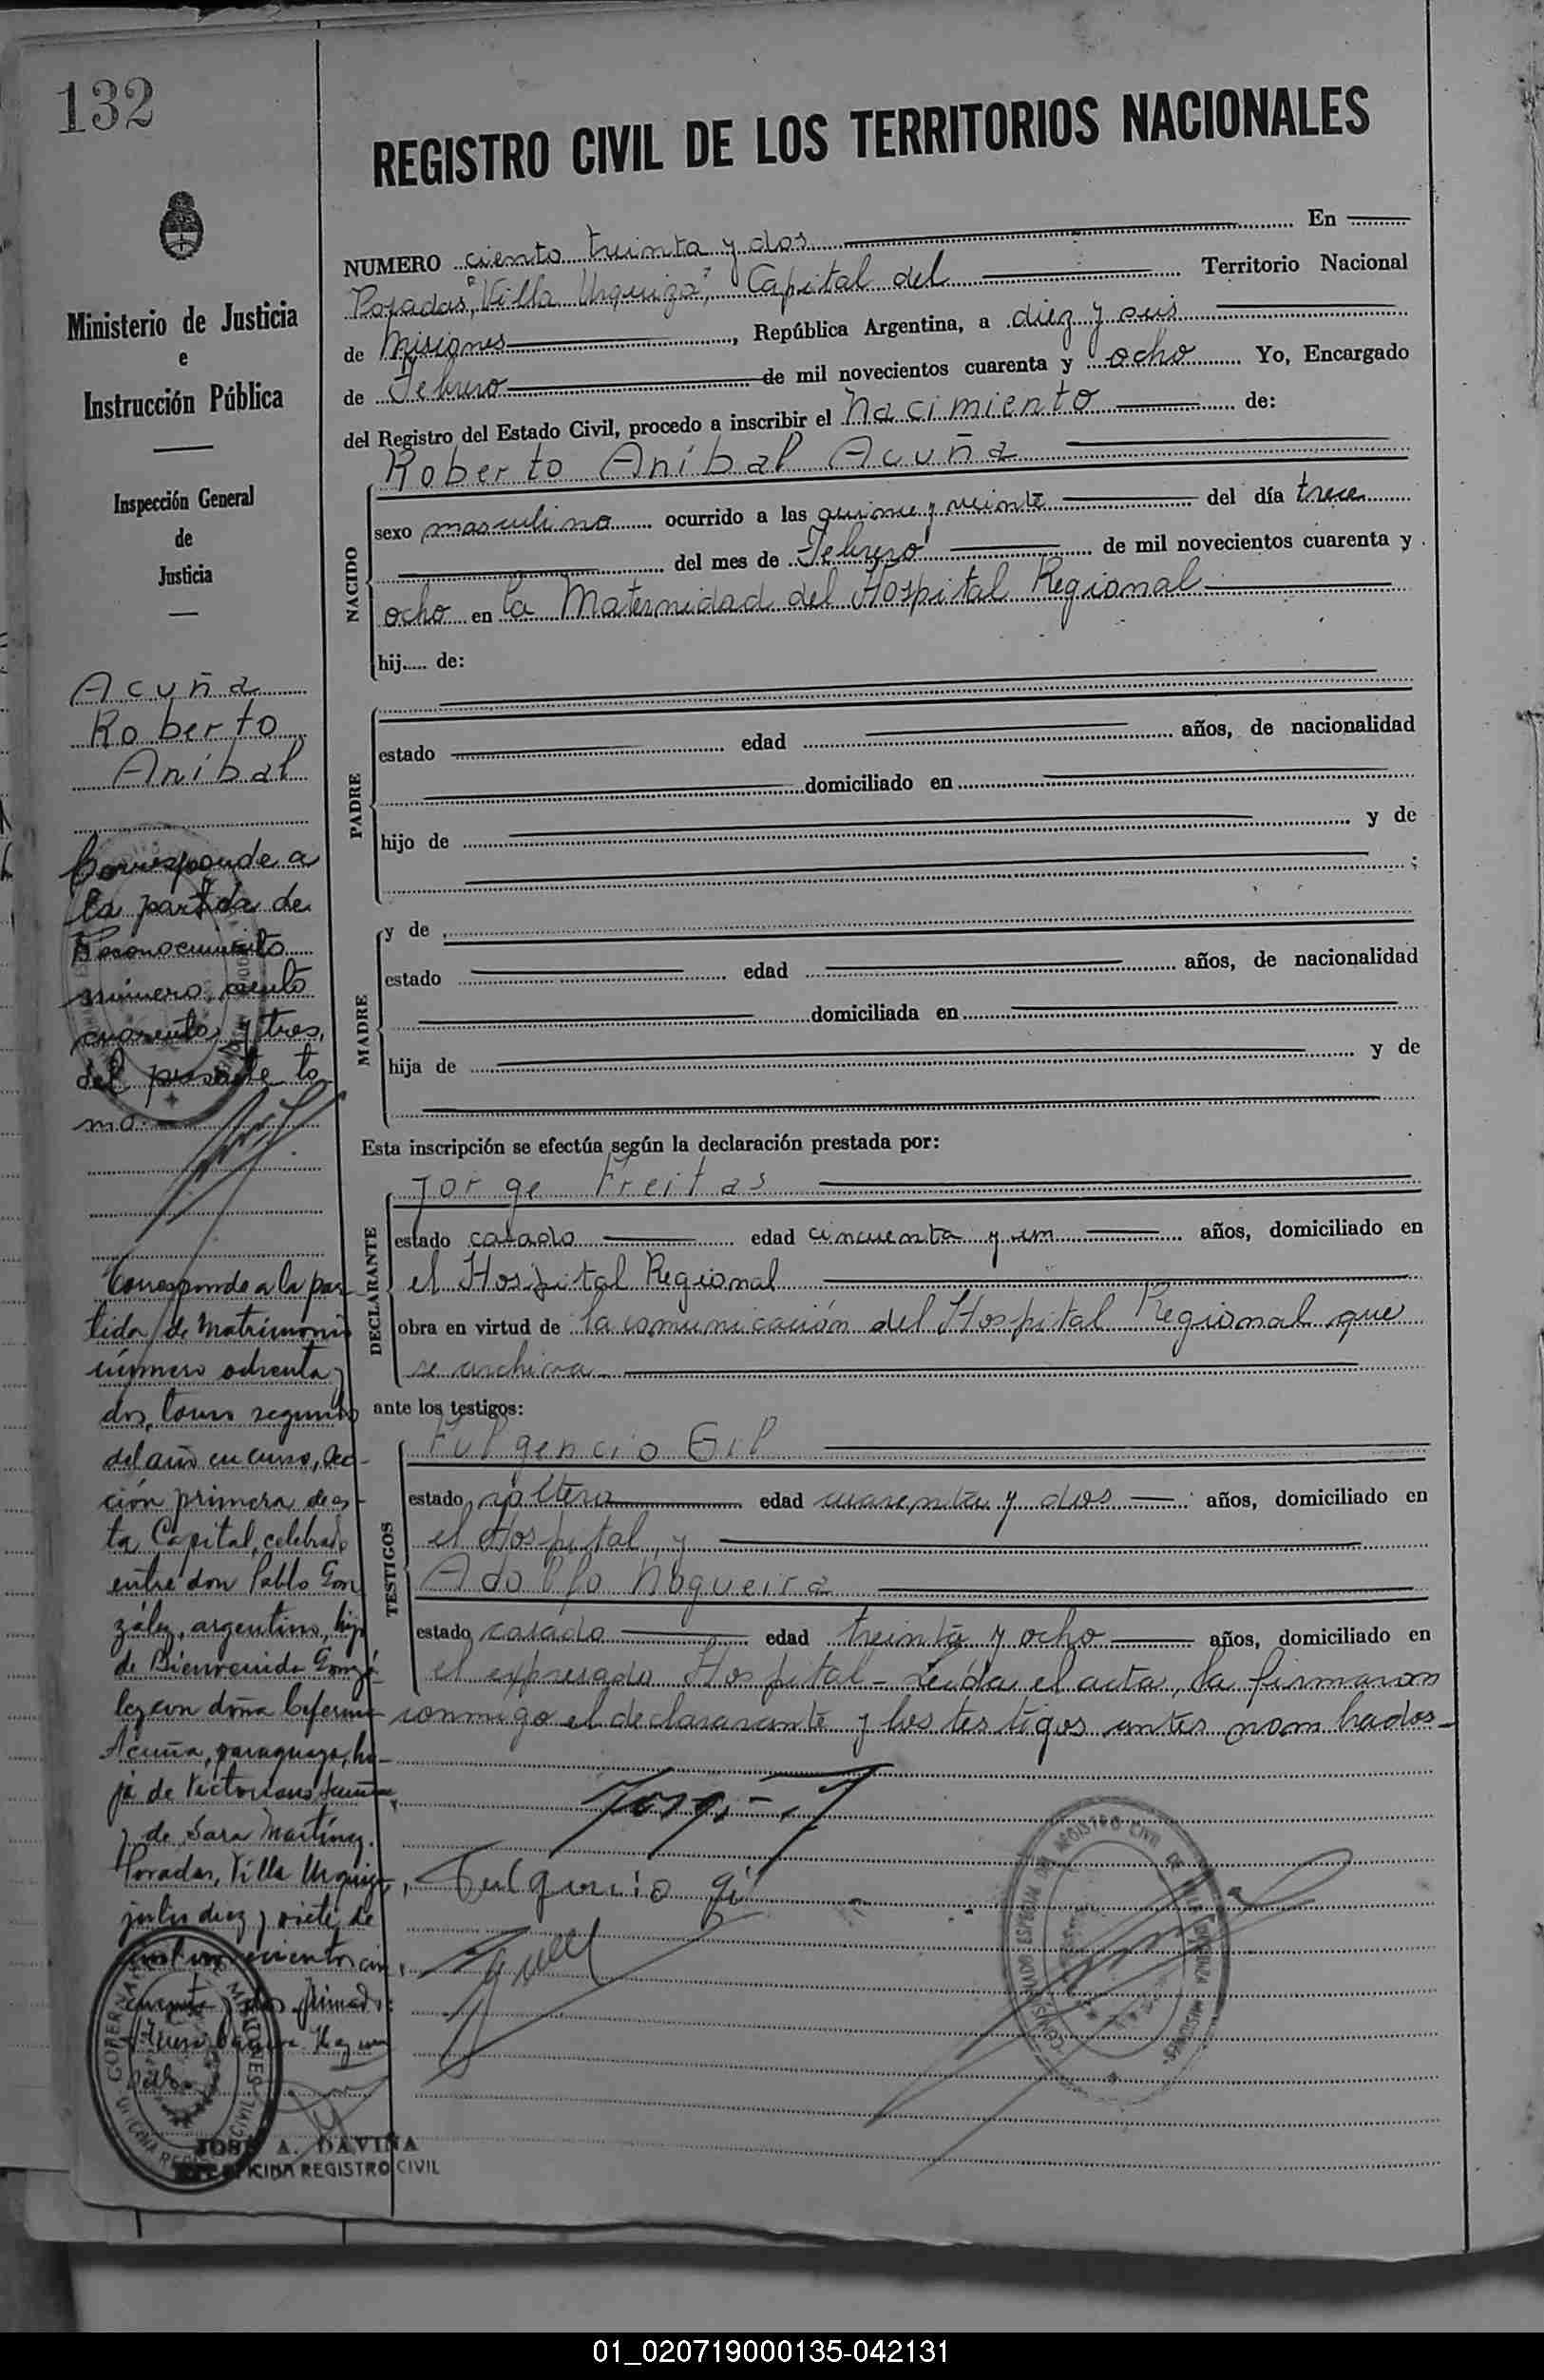 132
REGISTRO CIVIL DE LOS TERRITORIOS NACIONALES
Ministerio de Justicia
e
Instrucción Pública
Inspección General
de
Justicia
Acuña
Roberto
Aníbal
Corresponde a
la partida de
Reconocimiento
número ciento
cuarenta y tres,
del presente to
mo.
Corresponde a la par-
tida de Matrimonio
número ochenta y
dos, tomo segundo
del año en curso, Sec-
ción primera de es-
ta Capital, celebrado
entre don Pablo Gon
zález, argentino, hijo
de Bienvenida Gonzá-
lez con doña Ceferina
Acuña, paraguaya, hi-
ja de Victoriano Acuña
y de Sara Martínez.
Posadas, Villa Urquiza,
julio diez y siete de
mil novecientos cin
cuenta y dos. firmado:
Hay un
sello.
JOSE A. DAVIÑA
OFICINA REGISTRO CIVIL
NUMERO ciento treinta y dos En
Posadas, "Villa Urquiza", Capital del Territorio Nacional
de Misiones, República Argentina, a diez y seis
de Febrero de mil novecientos cuarenta y ocho Yo, Encargado
del Registro del Estado Civil, procedo a inscribir el nacimiento de:
NACIDO
Roberto Aníbal Acuña
sexo masculino ocurrido a las quince y veinte del día trece
del mes de Febrero de mil novecientos cuarenta y
ocho en la Maternidad del Hospital Regional
hij..... de:
PADRE
estado edad años, de nacionalidad
domiciliado en
hijo de y de
;
MADRE
y de
estado edad años, de nacionalidad
domiciliada en
hija de y de
Esta inscripción se efectúa según la declaración prestada por:
DECLARANTE
Jorge Freitas
estado casado edad cincuenta y un años, domiciliado en
el Hospital Regional
obra en virtud de la comunicación del Hospital Regional que
se archiva
ante los testigos:
TESTIGOS
Fulgencio Gil
estado soltero edad cuarenta y dos años, domiciliado en
el Hospital y
Adolfo Nogueira
estado casado edad treinta y ocho años, domiciliado en
el expresado Hospital - Leída el acta, la firmaron
conmigo el declarante y los testigos antes nombrados -
Fulgencio Gil
REGISTRO CIVIL DE VILLA URQUIZA MISIONES
01_020719000135-042131